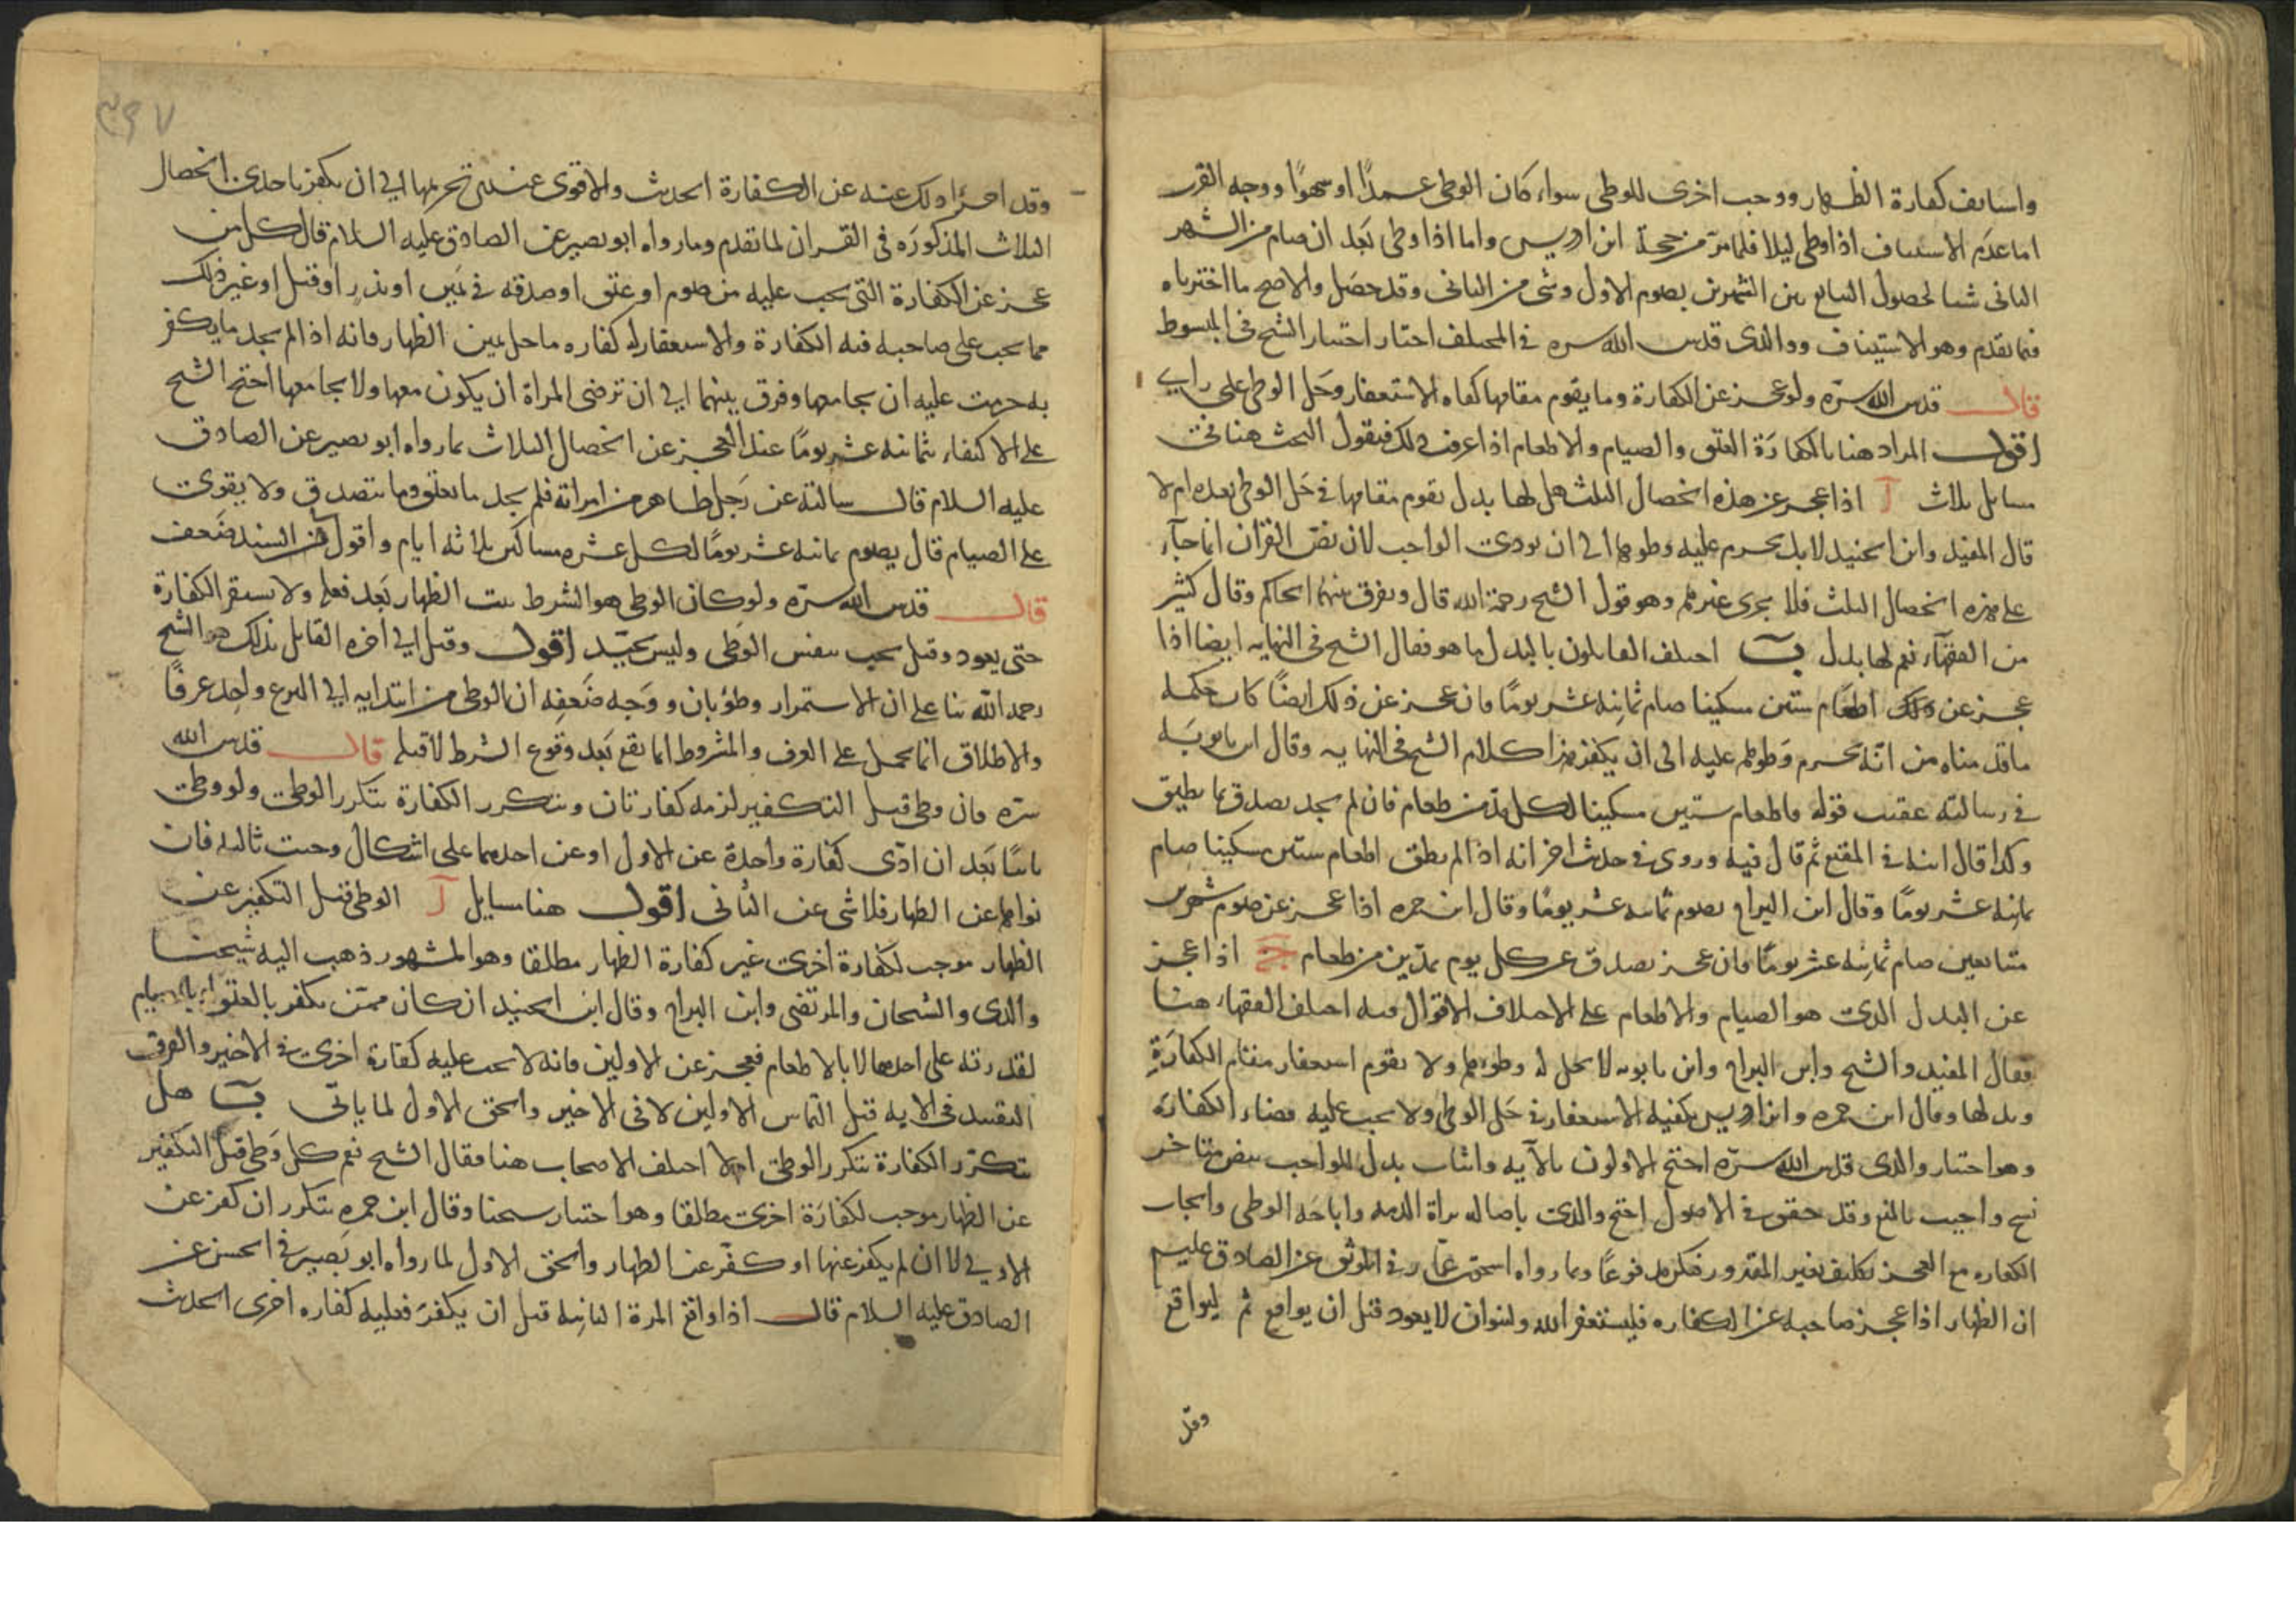 واستأنف كفارة الظهار ووجب اخرى للوطى سواء كان الوطى عمدًا او سهوًا ووجه القرب
اما عدم الاستيناف اذا وطى ليلا فلما مرّ من حجة ابن ادريس واما اذا وطى بَعد ان صام من الشهر
الثانى شيئا لحصول التتابع بين الشهرين بصوم الاول وشى من الثانى وقد حصَل والاصح ما اخترناه
فيما تقدم وهو الاستيناف ووالدى قدس الله سره فى المختلف اختار اختيار الشيخ فى المبسوط
قال قدس الله سرّه ولو عجز عن الكفارة وما يقوم مقامها كفاه الاستغفار وحَل الوطى على راى
اقول المراد هنا بالكفارَة العتق والصيام والاطعام اذا عرفت ذلك فنقول البحث هنا فى
مسايل ثلاث آ اذا عجز عن هذه الخصال الثلث هل لها بدل يقوم مقامها فى حَل الوطى بعده ام لا
قال المفيد وابن الجنيد لا بل يحرم عليه وطوها الى ان يودى الواجب لان نصّ القران انما جآء
على هذه الخصال الثلث فلا يجزى غيرهم وهو قول الشيخ رحمة الله قال ويفرق بينهما الحاكم وقال كثير
من الفقهآء نعم لها بدل بَ اختلف القايلون بالبدل ما هو فقال الشيخ فى النهايه ايضا اذا
عجز عن ذلك اطعام ستين مسكينا صام ثمانية عشر يومًا فان عجز عن ذلك ايضًا كان حكمه
ما قدمناه من انّه يحرم وَطوهم عليه الى ان يكفر هذا كلام الشيخ فى النهايه وقال ابن بابويَه
فى رسالته عقيب قوله فاطعام ستين مسكينا لكل مد من طعام فان لم يجد تصدق بما يطيق
وكذا قال ابنه فى المقنع ثم قال فيه وروى فى حديث اخر انه اذا لم يطق اطعام ستين مسكينا صام
ثمانية عشر يومًا وقال ابن البراج يصوم ثمانيه عشر يومًا وقال ابن حمزه اذا عجز عن صوم شهرين
متتابعين صام ثمانية عشر يومًا فان عجز تصدق عن كل يوم بمدّين من طعام ج اذا عجز
عن البدل الذى هو الصيام والاطعام على الاختلاف الاقوال فيه اختلف الفقهاء هنا
فقال المفيد والشيخ وابن البراج وابن بابويه لا يحل له وطوهم ولا يقوم استغفار مقام الكفارَةِ
وبدلها وقال ابن حمزه وابن ادريس يكفيه الاستغفار فى حَل الوطى ولا يجب عليه قضاء الكفارَة
وهو اختيار والدى قدس الله سرّه احتج الاولون بالآيه واثبات بدل للواجب بنص متاخر
نسخ واجيب بالمنع وقد حقق فى الاصول احتج والدى باصاله براة الذمه واباحَة الوطى وايجاب
الكفاره مع العجز تكليف بغير المقدور فيكون مدفوعًا وبما رواه اسحق بن عمار فى الموثق عن الصادق عليه
ان الظهار اذا عجز صاحبه عن الكفاره فليستغفر الله ولينوان لا يعود قبل ان يواقع ثم ليواقع
وقد
٣٩٧
وقد اجزأ ذلك عنه عن الكفارة الحديث والاقوى عندى تحريمها الى ان يكفر باحدى الخصال
الثلاث المذكورَه فى القران لما تقدم وما رواه ابو بصير عن الصادق عليه السلام قال كل من
عجز عن الكفارة التى يجب عليه من صوم او عتق او صدقه فى يَمين او نذر او قتل او غير ذلك
مما يجب على صاحبه فيه الكفارة والاستغفار له كفاره ما خلا يمين الظهار فانه اذا لم يجد ما يكفر
به حرمت عليه ان يجامعها وفرق بينهما الى ان ترضى المراة ان يكون معها ولا يجامعها احتج الشيخ
على الاكتفاء بثمانيه عشر يومًا عند العجز عن الخصال الثلاث بما رواه ابو بصير عن الصادق
عليه السلام قال سالته عن رَجل ظاهر من امراته فلم يجد ما يعتق وما يتصدق ولا يقوى
على الصيام قال يصوم ثمانيه عشر يومًا لكل عشره مساكين ثلاثه ايام واقول فى السند ضَعف
قال قدس الله سرّه ولو كان الوطى هو الشرط ثبت الظهار بَعد فعله ولا يستقر الكفارة
حتى يعود وقيل يجب بنفس الوَطى وليس بجيّد اقول وقيل الى اخره القايل بذلك هو الشيخ
رحمه الله بنا على ان الاستمرار وطؤ بان ووَجه ضَعفِه ان الوطى من ابتدايه الى النزع واحِد عرفًا
والاطلاق انما يحمل على العرف والمشروط انما يقع بَعد وقوع الشرط لا قبله قال قدس الله
سرّه فان وطى قبل التكفير لزمه كفارتان وتتكرر الكفارة بتكرر الوطى ولو وطى
ثانيًا بَعد ان ادّى كفارة واحدة عن الاول او عن احدهما على اشكال وجبت ثالثه فان
نواهما عن الظهار فلا شى عن الثانى اقول هنا مسايل آ الوطى قبل التكفير عن
الظهار موجب لكفارة اخرى غير كفارة الظهار مطلقا وهو المشهور ذهب اليه شيخنا
والدى والشيخان والمرتضى وابن البراج وقال ابن الجنيد ان كان ممّن يكفر بالعتق او بالصيام
لقدرته على احدهما لا بالاطعام فعجز عن الاولين فانه لا يجب عليه كفارة اخرى فى الاخير والفرق
التقييد فى الايه قبل التماس الاولين لا فى الاخير والحق الاول لما ياتى بَ هل
تتكرّر الكفارة بتكرر الوطى ام لا اختلف الاصحاب هنا فقال الشيخ نعم كل وَطى قبل التكفير
عن الظهار موجب لكفارَة اخرى مطلقا وهو اختيار شيخنا وقال ابن حمزه تتكرر ان كفر عن
الاولى لا ان لم يكفر عنها او كفّر عن الظهار والحق الاول لما رواه ابو بَصير فى الحسن عن
الصادق عليه السلام قال اذا واقع المرة الثانيه قبل ان يكفرَ فعليه كفاره اخرى الحديث